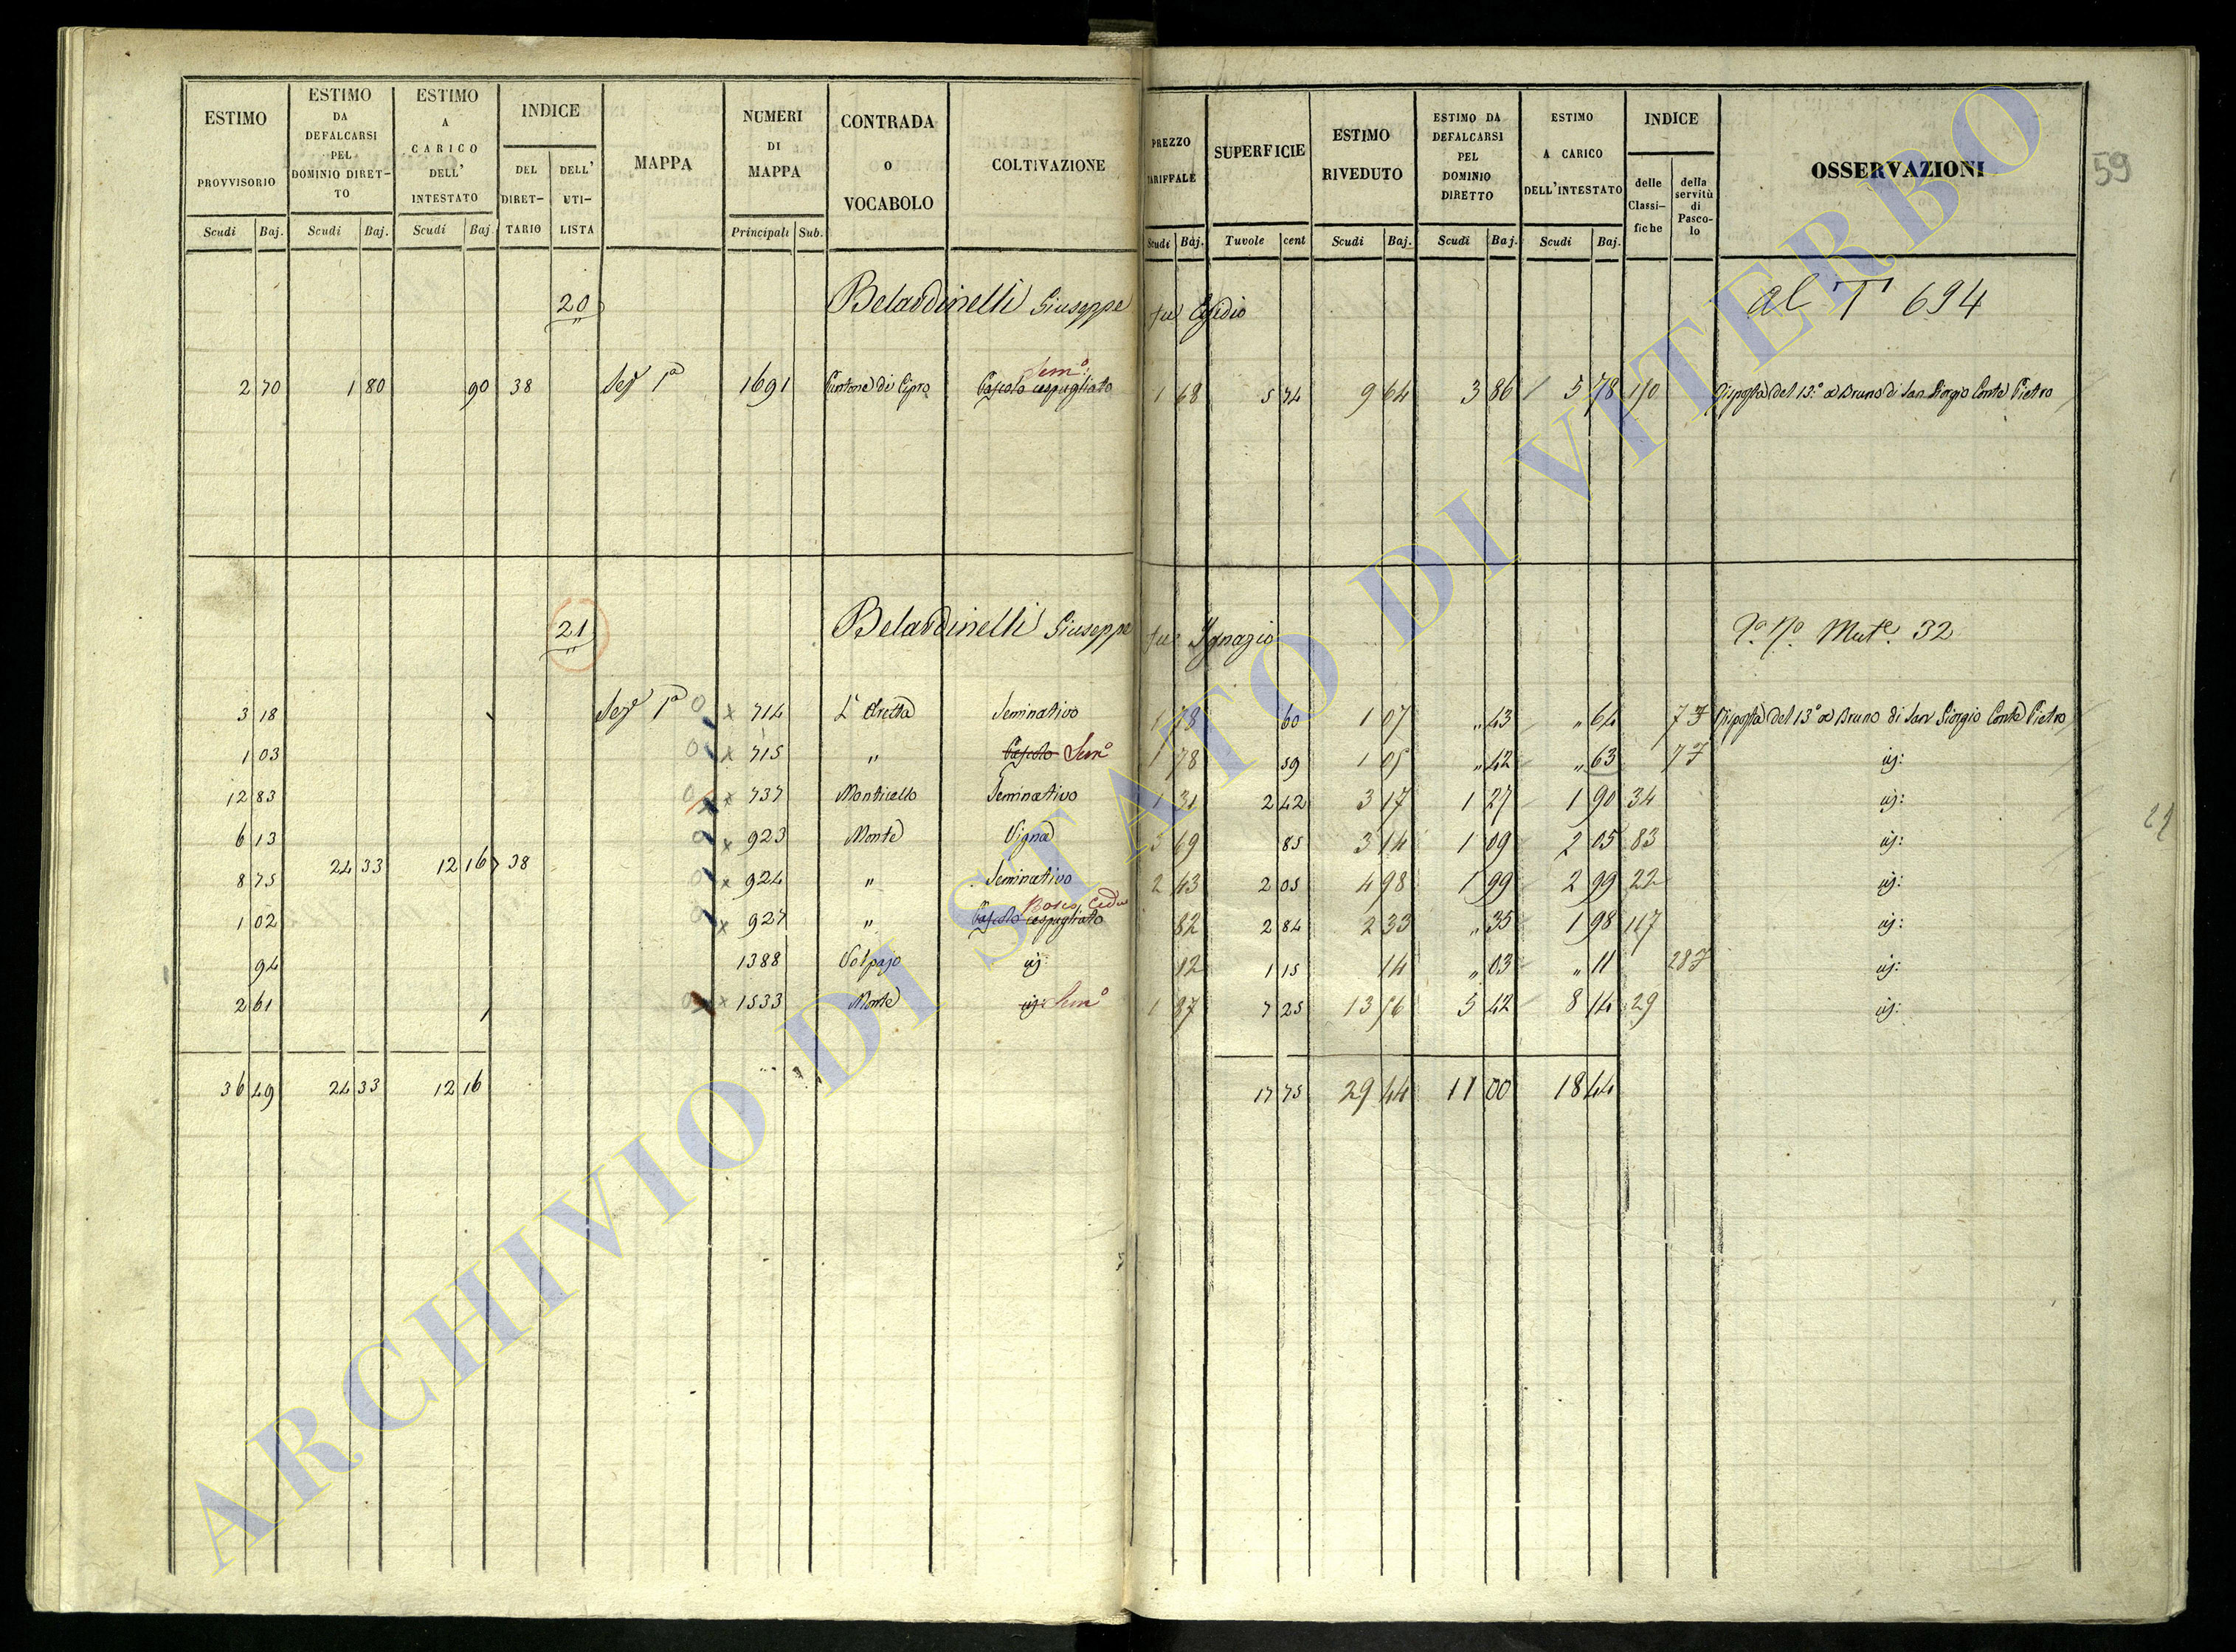 ESTIMO PROVVISORIO Scudi Baj.
ESTIMO DA DEFALCARSI PEL DOMINIO DIRET- TO Scudi Baj.
ESTIMO A CARICO DELL' INTESTATO Scudi Baj.
INDICE DEL DIRET- TARIO DELL' UTI- LISTA
MAPPA
NUMERI DI MAPPA Principali Sub.
CONTRADA o VOCABOLO
COLTIVAZIONE
PREZZO TARIFFALE Scudi Baj.
SUPERFICIE Tuvole cent
ESTIMO RIVEDUTO Scudi Baj.
ESTIMO DA DEFALCARSI PEL DOMINIO DIRETTO Scudi Baj.
ESTIMO A CARICO DELL'INTESTATO Scudi Baj.
INDICE delle Classi- fiche della servitù di Pasco- lo
OSSERVAZIONI
59
20 Belardinelli Giuseppe fu Egidio al T 694
Sem.º
2 70 1 80 90 38 Sez 1ª 1691 Cantone di Cipro Pascolo cespugliato 1 68 5 74 9 64 3 86 5 78 110 Risposta del 13.º a Bruno di San Giorgio Conte Pietro
21 Belardinelli Giuseppe fu Ignazio Mut.e 32
3 18 Sez 1ª 0 x 714 Seminativo 1 78 60 1 07 " 43 " 64 7 F Risposta del 13º a Bruno di San Giorgio Conte Pietro
1 03 0 x 715 " Pascolo Semº 1 78 59 1 05 " 42 " 63 7 F id:
12 83 0 x 737 Monticello Seminativo 1 31 2 42 3 17 1 27 1 90 34 id:
6 13 0 x 923 Monte Vigna 3 69 85 3 14 1 09 2 05 83 id:
24 33 12 16 38
8 75 0 x 924 " Seminativo 2 43 2 05 4 98 1 99 2 99 22 id:
Bosco Ceduo
1 02 0 x 927 " Pascolo cespugliato 82 2 84 2 33 " 35 1 98 117 id:
94 1388 Volpajo id: 12 1 15 14 " 03 " 11 28 F id:
2 61 0 x 1533 Monte id: Semº 1 87 7 25 13 56 5 42 8 14 29 id:
36 49 24 33 12 16 17 75 29 44 11 00 18 44
ARCHIVIO DI STATO DI VITERBO